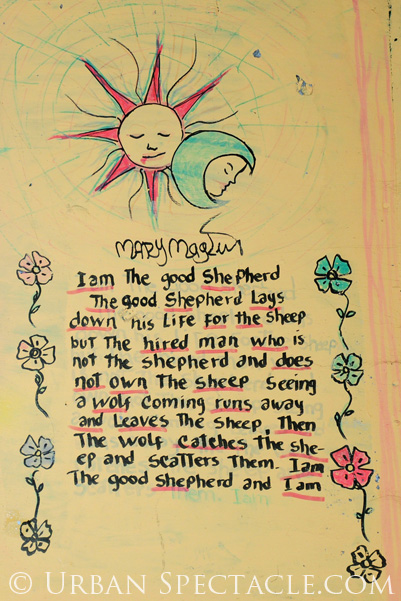 MARY
I am The good Shepherd
The good Shepherd Lays
down his Life For the Sheep
but The hired man who is
not the shepherd and does
not own The sheep Seeing
a wolf Coming runs away
and Leaves The sheep. Then
The wolf catches the she-
ep and scatters Them. I am
The good shepherd and I am
© URBAN SPECTACLE.COM